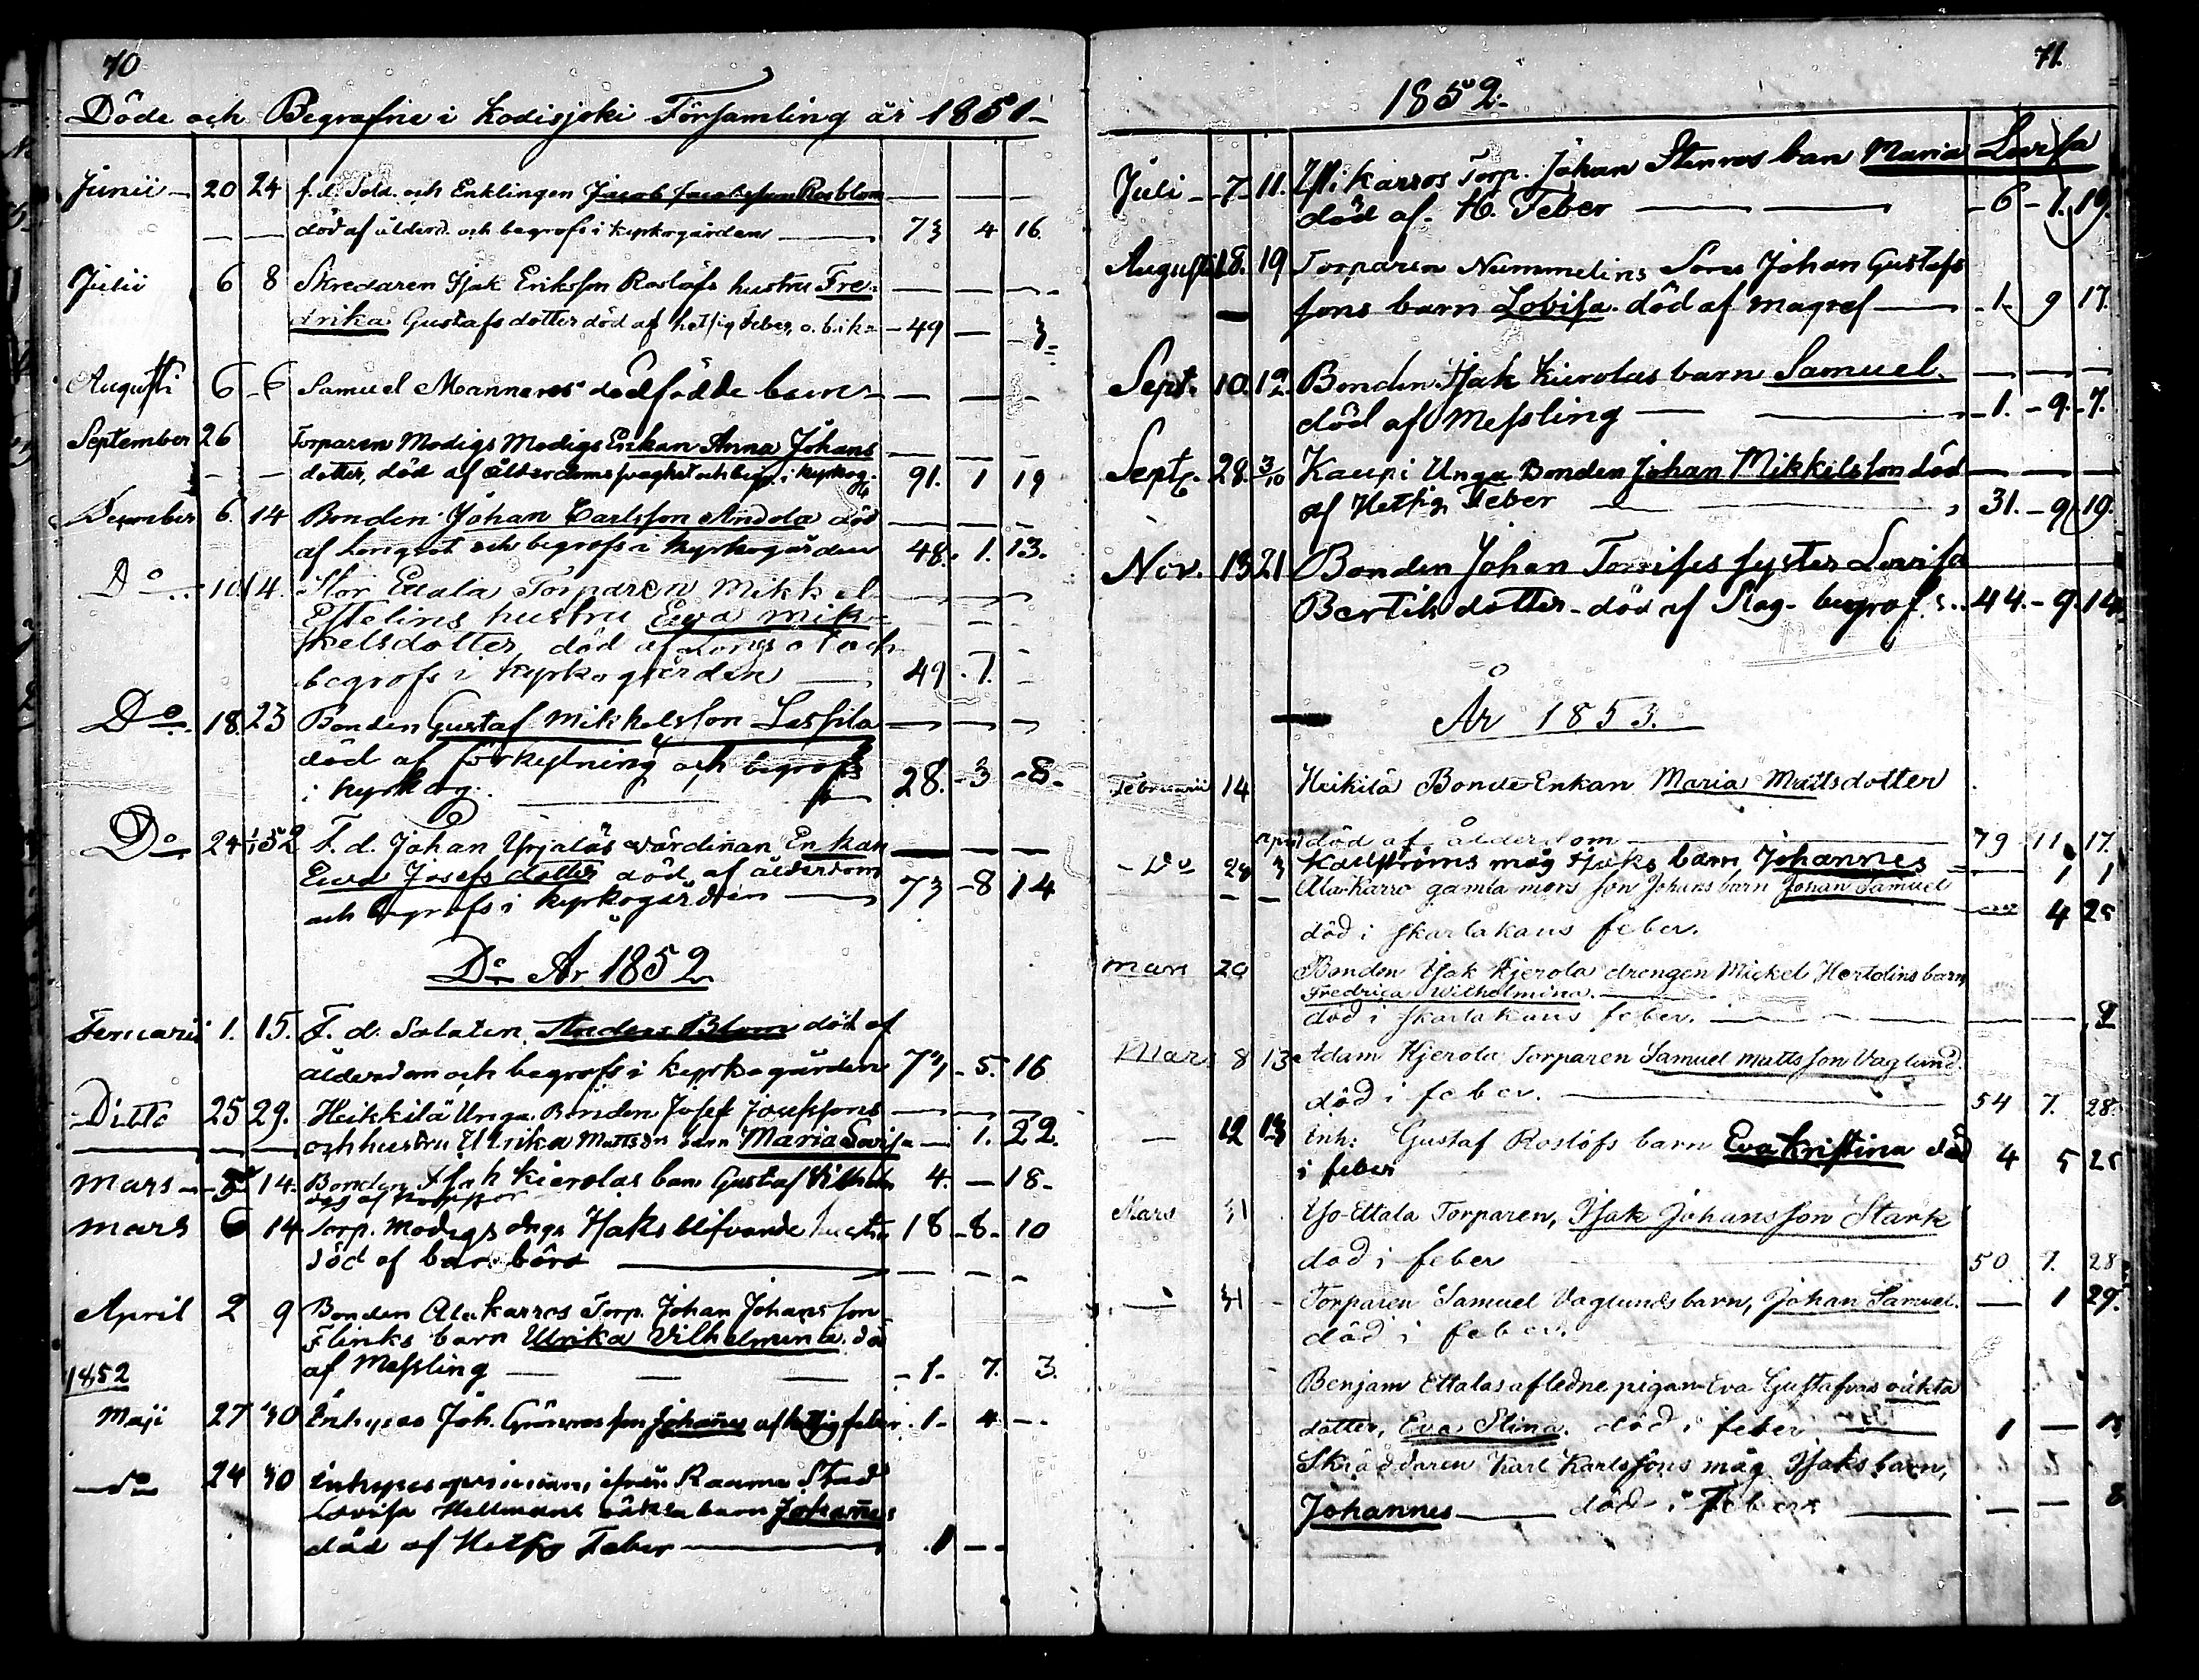 70
Döde och Begrafne i Kodisjoki Församling år 1851
Junii 20 24 f.d. Sold. och Enklingen Jacob Jacobsson Rosblom
död af ålderd. och begrafs i kyrkogården 73 4 16
Julii 6 8 Skredaren Isak Eriksson Roslöfs hustru Fre-
drika Gustafsdotter död af hetsig feber, 49 — 3
Augusti 6 6 Samuel Manneros dödfödde barn
September 26 Torparen Modigs Modigs Enkan Anna Johans
dotter, död af ålderdomsvaghet och begr. i kyrkog. 91. 1 19
December 6. 14 Bonden Johan Carlsson Andola död
af Longsot och begrafs i kyrkogården 48. 1. 13.
Do 10 14. Stor Ettala Torparen Mikkel
Estelins hustru Eva Mik-
kelsdotter, död af Longsot och
begrafs i kyrkogården 49. 7. —
Do 18. 23 Bonden Gustaf Mikkelsson Lassila
död af förkylning och begrafs
i kyrkog. 28. 3 8
Do 24 1/1 52 F. d. Johan Yrjäläs värdinan Enkan
Ewa Josefs dotter död af ålderdom
och begrafs i kyrkogården 73 8 14
Do År 1852
Feruarii 1. 15. F. d. Solaten Anders Blom död af
ålderdom och begrafs i kyrkogården 5. 16
Ditto 25 29. Heikkilä Unga Bonden Josef Josefssons
och hustru Ulrika Mattsdr barn Maria Lovisa — 1. 22.
Mars 5 14. Bonden Isak Kierolas barn Gustaf Vilhelm 4. — 18
död af koppor
Mars 6 14 Torp. Modigs drgs Isaks blifvande hustru 18 8 10
död af barnbörd
April 2 9 Bonden Alakarros Torp. Johan Johansson
Flinks barn Ulrika Vilhelmina död
af Messling 1. 7. 3.
1852
Maji 27 30 Inhyses Joh. Grönroos son Johannes af hettsig feber 1. 4 —
do 24 30 Inhyses qvinnan, ifrån Raumo Stad
Lovisa Hellmans oäkta barn Johannes
död af Hetsig Feber 1 — —
71.
1852.
Juli 7. 11. Ylikarros Torp. Johan Stenros barn Maria Lovisa
död af H. Feber 6 1. 19.
Augusti 18. 19 Torparen Nummelins Sons Johan Gustafs
sons barn Lovisa död af magref 1. 9 17.
Sept. 10. 12 Bonden Isak Kierolas barn Samuel
död af Messling 1. 9. 7.
Sept. 28. 3/10 Kaupi Unga Bonden Johan Mikkilsson död
af Hettsig Feber 31. 9 19.
Nov. 13 21 Bonden Johan Torrises syster Lovisa
Bertils dotter död af Slag begraf. 44. 9. 14
År 1853.
Februarii 14 Heikilä Bonde Enkan Maria Mattsdotter
död af ålderdom 79 11 17.
Do 28 april 3 Kallströms måg Isaks barn Johannes 1 1
Ala Karro gamla mors son Johans barn Johan Samuel
död i skarlakans feber. 4 25
Mars 20 Bonden Isak Kjerola drengen Mickel Hertolins barn
Fredrica Wilhelmina.
död i skarlakans feber. 2
Mars 8 13 Adam Kjerola Torparen Samuel Mattsson Vaglund
död i feber. 54 7. 28
12 13 Inh: Gustaf Roslöfs barn Eva Kristina död
i feber 4 5 25
Mars 31 Yso-Ettala Torparen, Isak Johansson Stark
död i feber 50 7. 28
31 Torparen Samuel Vaglunds barn, Johan Samuel. — 1 29.
död i feber.
Benjam Ettalas afledne pigan Eva Gustafvas oäkta
dotter, Eva Stina. död i feber 1 —
Skräddaren Karl Karlssons måg Isaks barn,
Johannes död i Feber — — 8